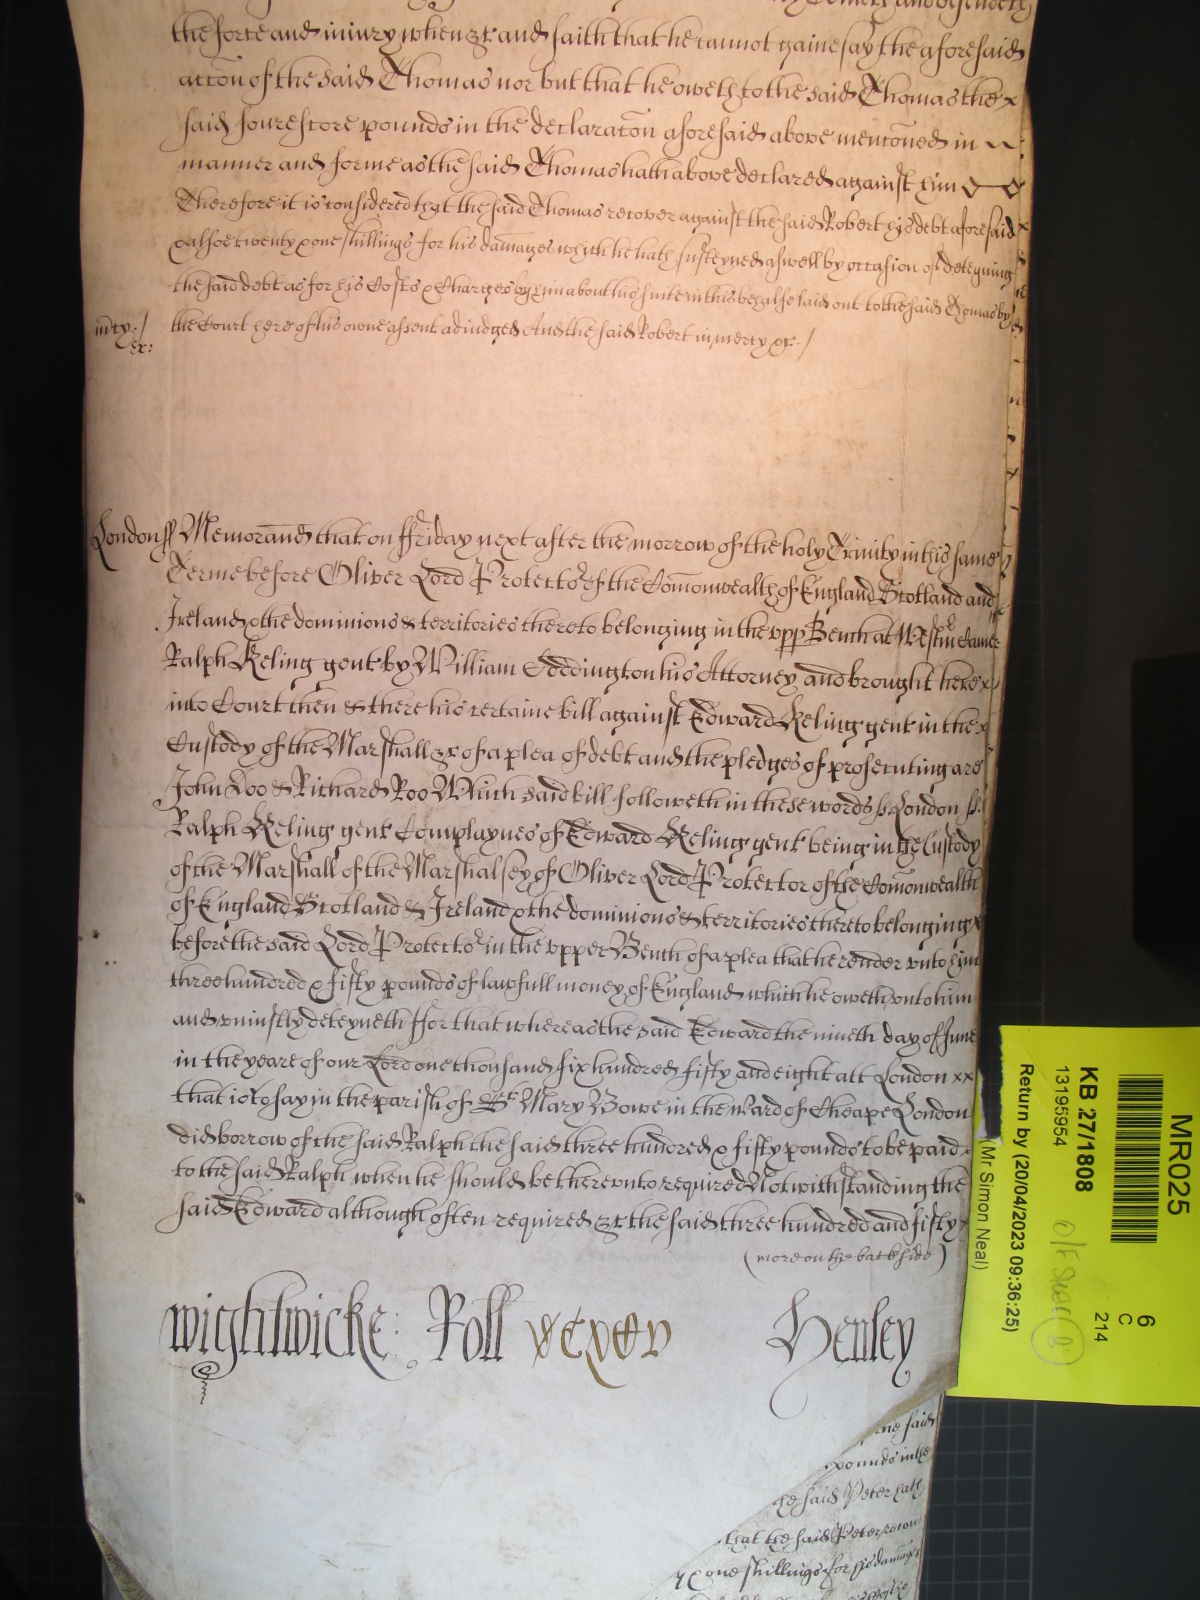 the force and iniury when &c and saith that he cannot gainesay the aforesaid
accōn of the said Thomas nor but that he oweth to the said Thomas the x
said fourescore pounds in the declaracōn aforesaid above mencōned in
manner and forme as the said Thomas hath above declared against him
Therefore it is considered that the said Thomas recover against the said Robert his debt aforesaid
& alsoe twenty & one shillings for his damages which he hath susteyned aswell by occasion of deteyning
the said debt as for his Costs & Charges by him about his suite in this behalfe laid out to the said Thomas by
mcy:/ the Court here of his owne assent adiudged And the said Robert in mercy &c:/
ex:
London ss Memorand that on ffriday next after the morrow of the holy Trinity in this same
Terme before Oliver Lord Protector of the Comonwealth of England Scotland and
Ireland & the dominions & territories thereto belonging in the vpp Bench at Westm Came
Ralph Keling gent by William Eddington his Attorney and brought here x
into Court then & there his certaine bill against Edward Keling gent in the x
Custody of the Marshall &c of a plea of debt and the pledges of prosecuting are
John Doo & Richard Roo Which said bill followeth in these words ss London ss
Ralph Keling gent Complaynes of Edward Keling gent being in the Custody
of the Marshall of the Marshalsey of Oliver Lord Protector of the Comonwealth
of England Scotland & Ireland & the dominions & territories thereto belonging x
before the said Lord Protector in the vpper Bench of a plea that he render vnto him
three hundred & fifty pounds of lawfull money of England which he oweth vnto him
and vniustly deteyneth ffor that whereas the said Edward the nineth day of June
in the yeare of our Lord one thousand six hundred fifty and eight att London xx
that is to say in the parish of St Mary Bowe in the Ward of Cheape London
did borrow of the said Ralph the said three hundred & fifty pounds to be paid
to the said Ralph when he should be therevnto required Notwithstanding the
said Edward although often required &c the said three hundred and fifty x
(more on the backside)
Wightwicke: Roll Henley
the said
pounds in the
the said Peter hath
that the said Peter recov
& one shillings for his damages
MR025
6
C
214
KB 27/1808
13195954
Return by (20/04/2023 09:36:25)
(Mr Simon Neal)